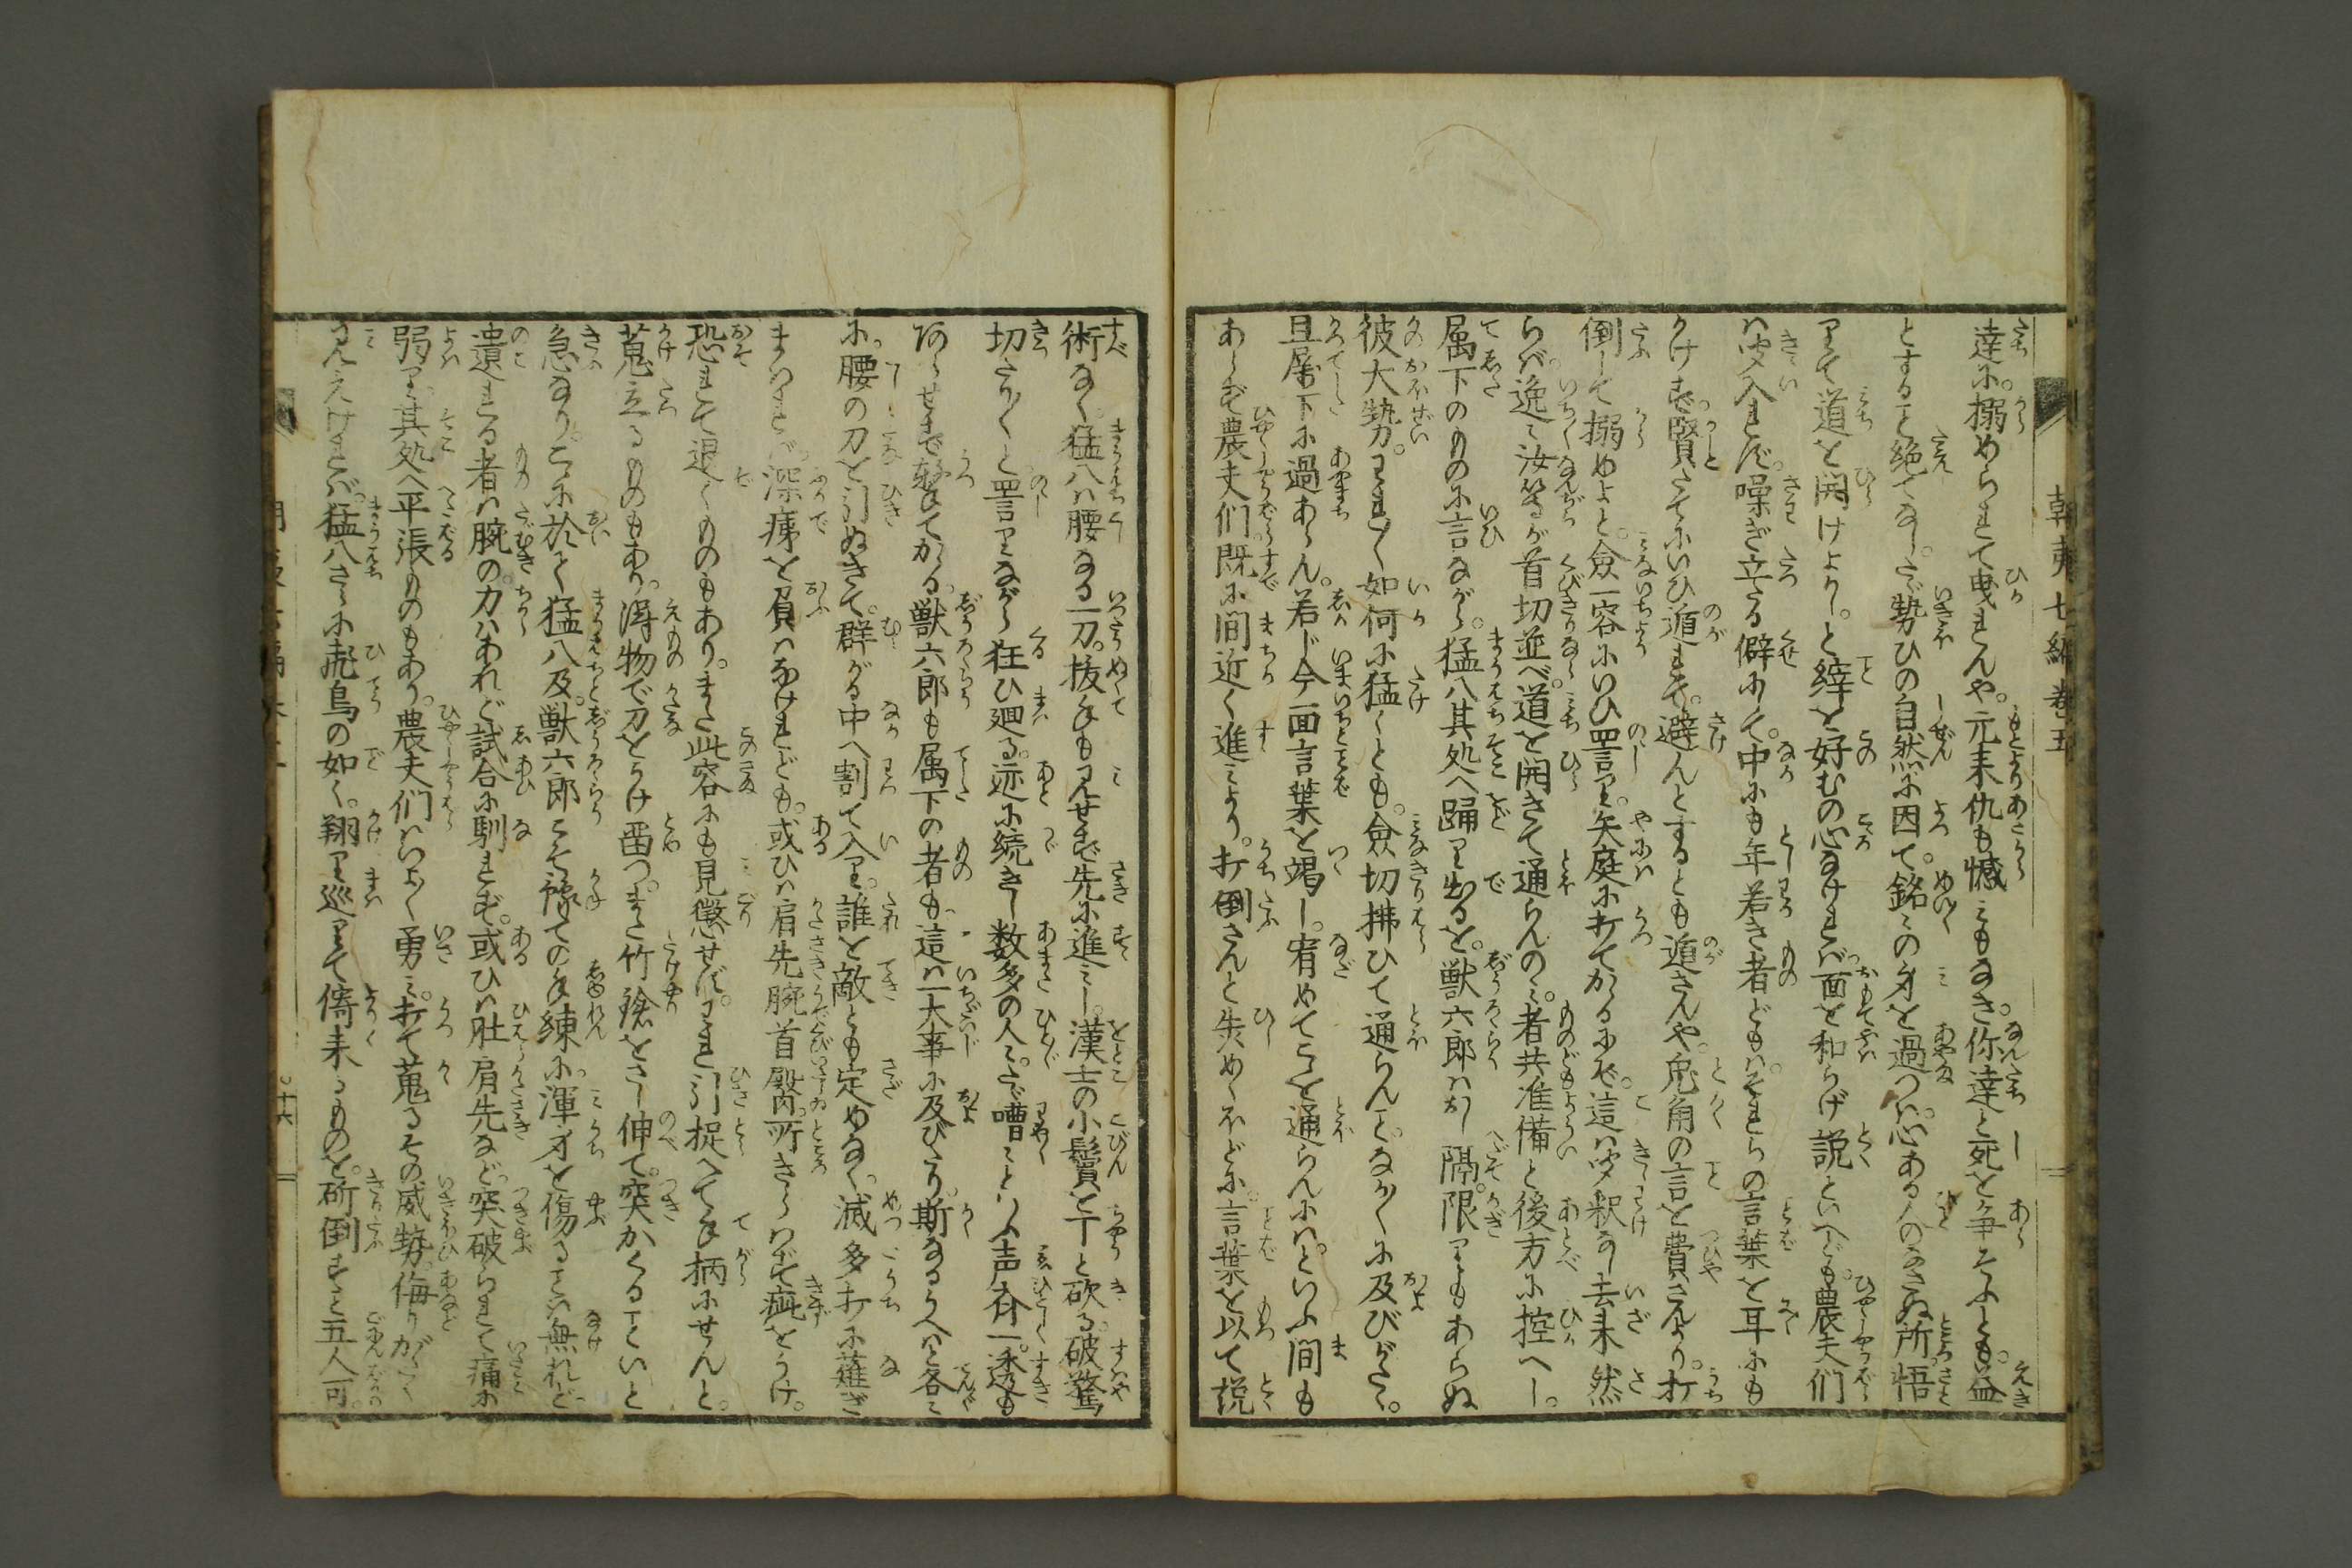 朝夷七編巻五
達に。搦められて曳れんや。元来仇も憾みもなき。你達と死を争そふとも。益
とすること絶てなし。さゞ勢ひの自然に因て。銘々の身を過つハ。心ある人のなさぬ所。悟
りて道を開けよかし。と縡を好むの心なけれバ。面を和らげ説といへども。農夫们
ハ聞入れず。噪ぎ立たる僻にて。中にも年若き者どもハ。それらの言葉を耳にも
かけず。賢さてにいひ遁れて。避んとするとも遁さんや。兎角の言を費さんより。打
倒して搦めよと。僉一容にいひ罵り。矢庭に打てかゝるにぞ。這ハ聞釈なし去来然
らバ。逸々汝等が首切並べ。道を開きて通らんのみ。者共准備と後方に控へし。
属下のものに言ながら。猛八其処へ踊り出るを。獣六郎ハおし隔。限りもあらぬ
彼大勢。われ〳〵如何に猛くとも。僉切拂ひて通らんこと。なか〳〵に及びがたく。
且属下に過あらん。若じ今一回言葉を竭し。宥めてこゝを通らんにハ。といふ間も
あらず農夫们。既に間近く進みより。打倒さんと失めくほどに。言葉を以て説
術なく。猛八ハ腰なる一刀。抜手も見せず先に進みし。漢士の小鬢を丁と砍る。破驚
切たり〳〵と罵りながら狂ひ廻る。迹に続きし数多の人々。さゞ嘈々といふ声斉一。透も
あらせまで撃てかゝる。獣六郎も属下の者も。這ハ一大事に及びたり。斯なるうへハと各々
に。腰の刀を引ぬきて。群がる中へ割て入り。誰を敵とも定めなく。滅多打に薙ぎ
まハれバ。深痍を負ハなけれども。或ひハ肩先腕首臀肉。所きらハず疵をうけ。
恐れて退くものもあり。また此容にも見懲せず。われ引捉へて手柄にせんと。
蒐立るものもあり。得物で刀をうけ留つ。また竹鎗をさし伸て。突かくることいと
急なり。こゝに於て猛八及。獣六郎こそ豫ての手練に。渾身を傷ることハ無れど。
遺れる者ハ腕の。力ハあれど試合に馴れず。或ひハ肚肩先など。突破られて痛に
弱り。其処へ平張ものもあり。農夫们ハいよ〳〵勇み。打て蒐るその威勢。侮りがたく
見えけれバ。猛八さらに飛鳥の如く。翔り巡りて倚来るものを。斫倒すこと五人可。
十六